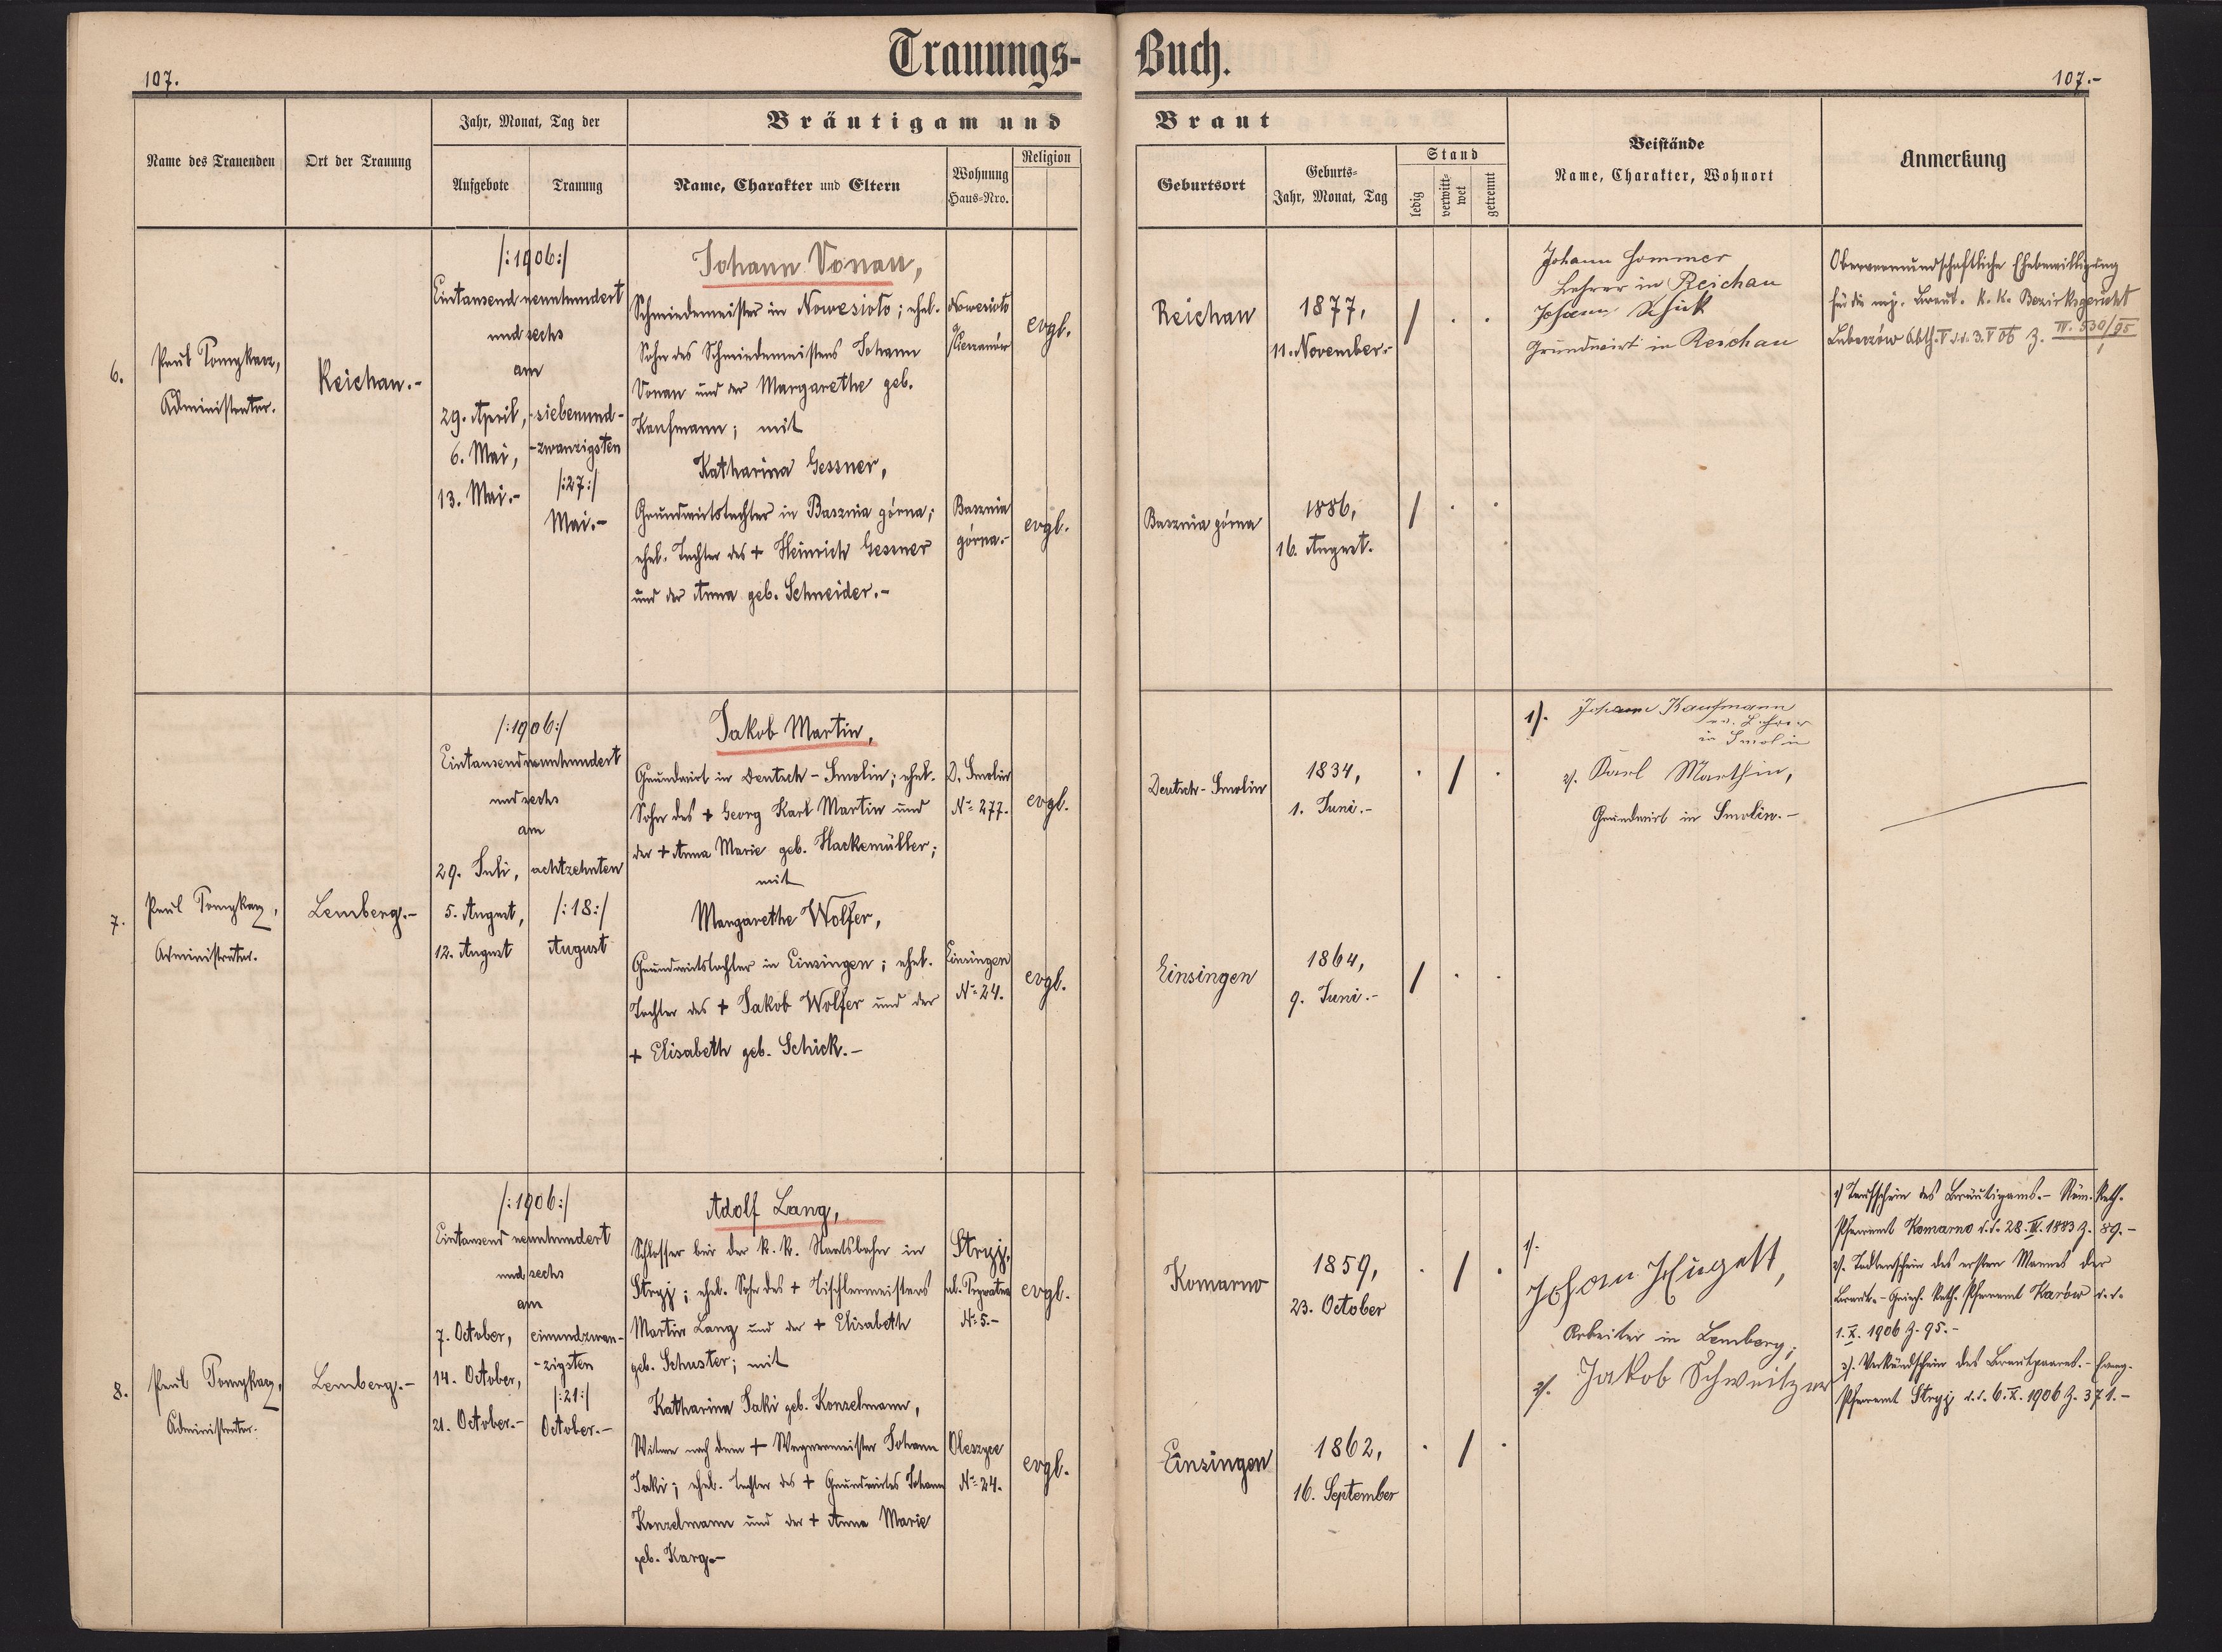 Trauungs- Buch.
107.
107.-
Name des Trauenden
Ort der Trauung
Jahr, Monat, Tag der
Aufgebote
Trauung
Bräutigam und
Name, Charakter und Eltern
Wohnung
Haus-Nro.
Religion
Braut
Geburtsort
Geburts-
Jahr, Monat, Tag
Stand
ledig
verwitt-
wet
getrennt
Beistände
Name, Charakter, Wohnort
Anmerkung
6.
Paul
Administrator.
Reichau.-
/:1906:/
Eintausendneunhundert
und sechs
am
29. April,
6. Mai,
13. Mai.-
siebenund-
-zwanzigsten
/:27:/
Mai.-
Johann Vonau,
Schmiedemeister in Nowesioło; ehel.
Sohn des Schmiedemeisters Johann
Vonau und der Margarethe geb.
Kaufmann; mit
Katharina Gessner,
Grundwirtstochter in Basznia górna;
ehel. Tochter des + Heinrich Gessner
und der Anna geb. Schneider.-
Nowesioło
Basznia
górna.-
evgl.
evgl.
Reichau
1877,
11. November.-
/ . .
Basznia górna
1886,
16. August.
/ . .
Johann Sommer
Lehrer in Reichau
Johann Schick
Grundwirt in Reichau
Obervormundschaftliche Ehebewilligung
für die mj. Braut. K. K. Bezirksgericht
Lubaczów Abth. V d.d. 3. V 06 Z.
7.
Paul
Administrator.
Lemberg.-
/:1906:/
Eintausendneunhundert
und sechs
am
29. Juli,
5. August,
12. August
achtzehnten
/:18:/
August
Jakob Martin,
Grundwirt in Deutsch-Smolin; ehel.
Sohn des + Georg Karl Martin und
der + Anna Marie geb. Hackemüller;
mit
Margarethe Wolfer,
Grundwirtstochter in Einsingen; ehel.
Tochter des + Jakob Wolfer und der
+ Elisabeth geb. Schick.-
D. Smolin
No 277.
Einsingen
No 24.
evgl.
evgl.
Deutsch-Smolin
1834,
1. Juni.-
. / .
Einsingen
1864,
9. Juni.-
/ . .
1/. Johann Kaufmann
ev. Lehrer
in Smolin
2/. Karl Marthin,
Grundwirt in Smolin.-
8.
Paul
Administrator.
Lemberg.-
/:1906:/
Eintausend neunhundert
und sechs
am
7. October,
14. October,
21. October.-
einundzwan-
-zigsten
/:21:/
October.-
Adolf Lang,
Schlosser bei der k.k. Staatsbahn in
Stryj; ehel. Sohn des + Tischlermeisters
Martin Lang und der + Elisabeth
geb. Schuster; mit
Katharina Jaki geb. Konzelmann,
Witwe nach dem + Wagnermeister Johann
Jaki; ehel. Tochter des + Grundwirtes Johann
Konzelmann und der + Anna Marie
geb. Karg.-
Stryj,
No 5.-
Oleszyce
No 24.
evgl.
evgl.
Komarno
1859,
23. October
. / .
Einsingen
1862,
16. September
. / .
1/.
Johan
Arbeiter in Lemberg;
2/. Jakob Schweitzer
1/ Taufschein des Bräutigams.- Röm. Kath.
Pfarramt Komarno d.d. 28. 1883 Z. 89.-
2/. Todtenschein des ersten Mannes der
Braut.- Griech. Kath. Pfarramt Karów d.d.
1. X. 1906 Z. 95.-
3/. Verkündschein des Brautpaares.- Evang.
Pfarramt Stryj d.d. 6. X. 1906 Z. 371.-